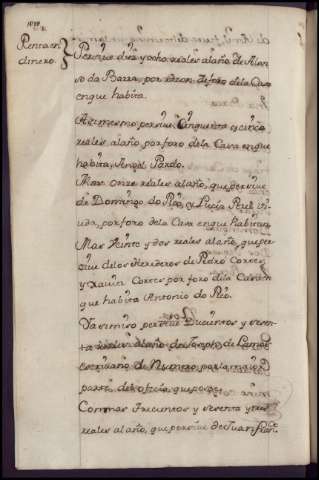 Renta en
dinero.
Percive diez y ocho reales al año de Alon
so da Barra, por razon de foro de la Casa
en que habita.
Asimesmo percive Cinquenta y cinco
reales al año, por foro de la Casa en que
habita, Angel Pardo.
Mas once reales al año, que percive
de Domingo do Rio, y Lucia Perez Vi
uda, por foro de la Casa en que habitan.
Mas Ciento y dos reales al año, que per
cive de los Herederos de Pedro Cortes
y Xavier Cortes por foro de la Casa en
que habita Antonio do Rio.
Y asimismo percive Ducientos y seten
ta reales al año de Joseph de
escrivano de Numero, por la mitad
parte del oficio, que
Con mas Trecientos y setenta y tres
reales al año, que percive de Juan Fran.co